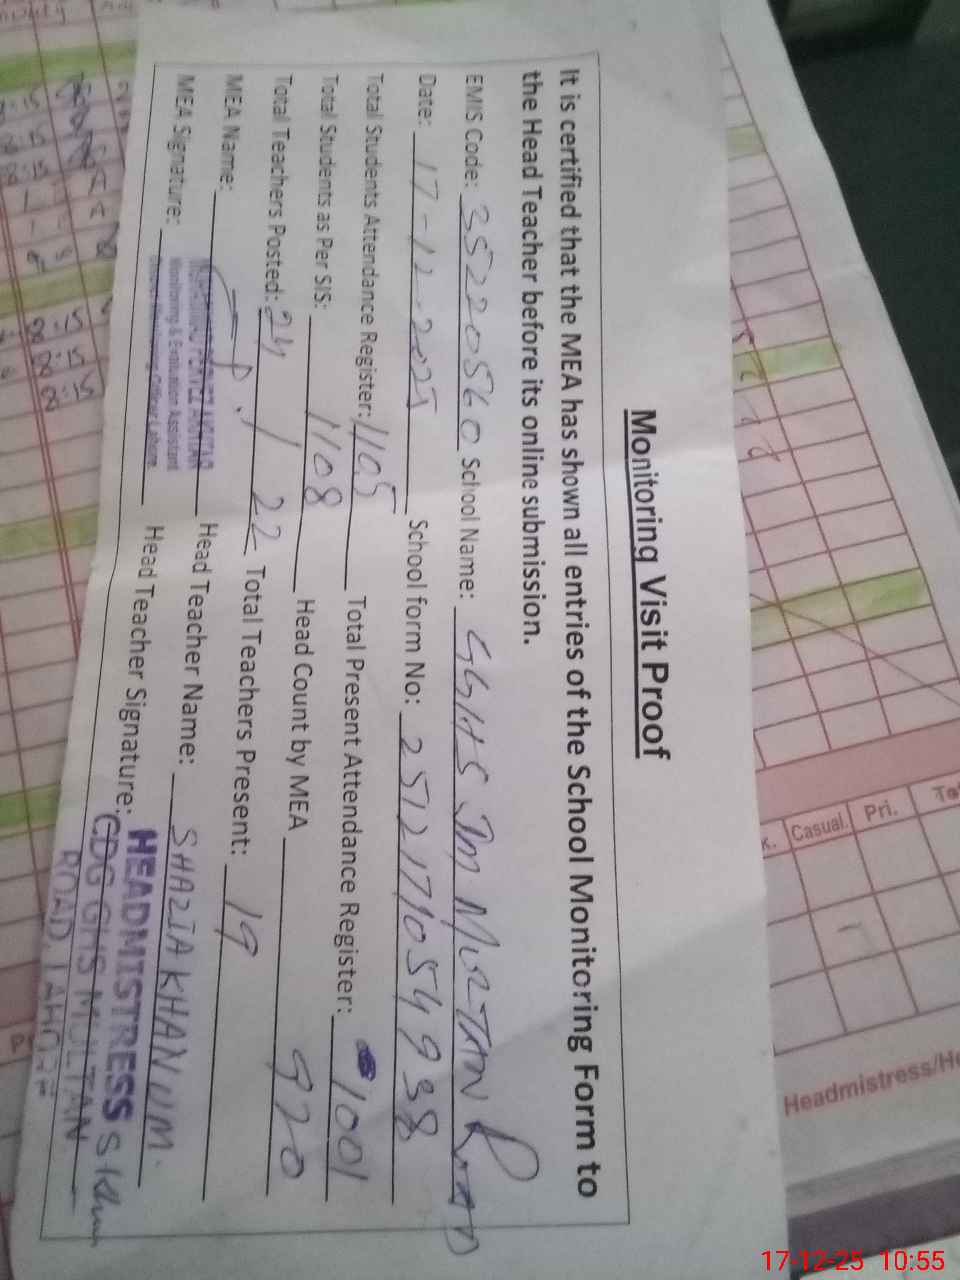 Monitoring Visit Proof
It is certified that the MEA has shown all entries of the School Monitoring Form to
the Head Teacher before its online submission.
EMIS Code: 35220560 School Name: GGHS Jm MULTAN ROAD
Date: 17-12-2025 School form No: 251217105493 8
Total Students Attendance Register: 1105 Total Present Attendance Register: 1001
Total Students as Per SIS: 1108 Head Count by MEA 920
Total Teachers Posted: 24 / 22 Total Teachers Present: 19
MEA Name: AKHTAR Head Teacher Name: SHAZIA KHANUM.
MEA Signature: Monitoring & Evaluation Assistant Head Teacher Signature:
Officer Lahore.
HEADMISTRESS
CDG GHS MULTAN
ROAD, LAHORE
Casual. Pri.
Headmistress/He
17-12-25 10:55